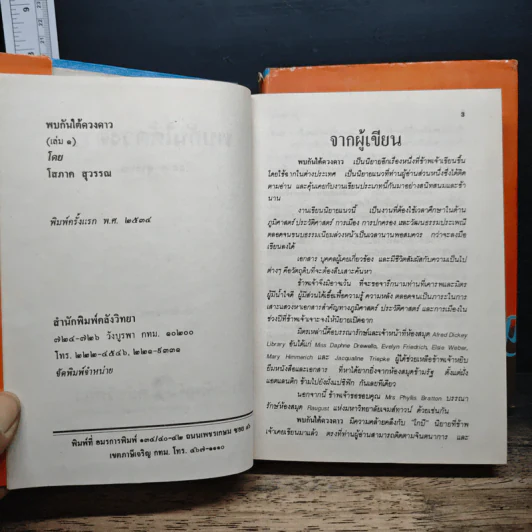 พบกันใต้ดวงดาว
(เล่ม ๑)
โดย
โสภาค สุวรรณ
พิมพ์ครั้งแรก พ.ศ. ๒๕๓๔
สำนักพิมพ์คลังวิทยา
๗๒๔-๗๒๖ วังบูรพา กทม. ๑๐๒๐๐
โทร. ๒๒๒-๔๕๔๖, ๒๒๑-๙๓๓๑
จัดพิมพ์จำหน่าย
พิมพ์ที่ อมรการพิมพ์ ๑๓๔/๔๐-๔๒ ถนนเพชรเกษม ซอย
เขตภาษีเจริญ กทม. โทร. ๔๖๗-๑๑๑๐
3
จากผู้เขียน
พบกันใต้ดวงดาว เป็นนิยายอีกเรื่องหนึ่งที่ข้าพเจ้าเขียนขึ้น
โดยใช้ฉากในต่างประเทศ เป็นนิยายแนวที่ท่านผู้อ่านส่วนหนึ่งซึ่งได้ติด
ตามอ่าน และคุ้นเคยกับงานเขียนประเภทนี้กันมาอย่างสนิทสนมและช้า
นาน
งานเขียนนิยายแนวนี้ เป็นงานที่ต้องใช้เวลาศึกษาในด้าน
ภูมิศาสตร์ ประวัติศาสตร์ การเมือง การปกครอง และวัฒนธรรมประเพณี
ตลอดจนขนบธรรมเนียมล่วงหน้าเป็นเวลานานพอสมควร กว่าจะลงมือ
เขียนลงได้
เอกสาร บุคคลผู้เคยเกี่ยวข้อง และมีชีวิตสัมผัสกับความเป็นไป
ต่างๆ คือวัตถุดิบที่จะต้องสืบเสาะค้นหา
ข้าพเจ้าจึงมิอาจเว้น ที่จะขอจารึกนามท่านที่เคารพและมิตร
ผู้มีน้ำใจดี ผู้มีส่วนได้เอื้อเฟื้อความรู้ ความหลัง ตลอดจนเป็นภาระในการ
เสาะแสวงหาเอกสารสำคัญทางภูมิศาสตร์ ประวัติศาสตร์ และการเมืองใน
ช่วงปีที่ข้าพเจ้าเจาะจงให้นิยายเปิดฉาก
มิตรเหล่านี้คือบรรณารักษ์และเจ้าหน้าที่ห้องสมุด Alfred Dickey
Library อันได้แก่ Miss Daphne Drewello, Evelyn Friedrich, Elsie Weber,
Mary Himmerich และ Jacqueline Triepke ผู้ได้ช่วยเหลือข้าพเจ้าหยิบ
ยืมหนังสือและเอกสาร ที่หาได้ยากยิ่งจากห้องสมุดข้ามรัฐ ตั้งแต่ฝั่ง
แอตแลนติก ข้ามไปยังฝั่งแปซิฟิก กันเลยทีเดียว
นอกจากนี้ ข้าพเจ้าขอขอบคุณ Mrs Phyllis Bratton บรรณา
รักษ์ห้องสมุด Raugust แห่งมหาวิทยาลัยเจมส์ทาวน์ ด้วยเช่นกัน
พบกันใต้ดวงดาว มีความคล้ายคลึงกับ "โกบี" นิยายที่ข้าพ
เจ้าเคยเขียนมาแล้ว ตรงที่ท่านผู้อ่านสามารถติดตามจินตนาการ และ